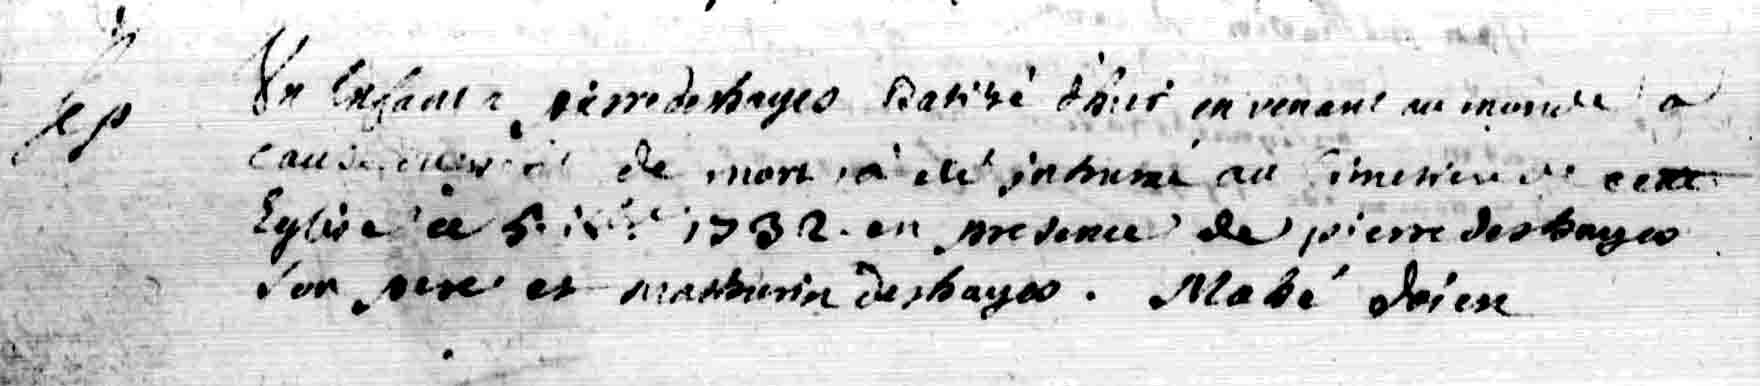 Sep
Un Enfant a pierre deshayes Batisé d'hier en venant au monde a
cause de mort a eté inhumé au Cimetiere de cette
Eglise ce 5. 1732. en presence de pierre deshayes
son pere et mathurin deshayes. Mabé